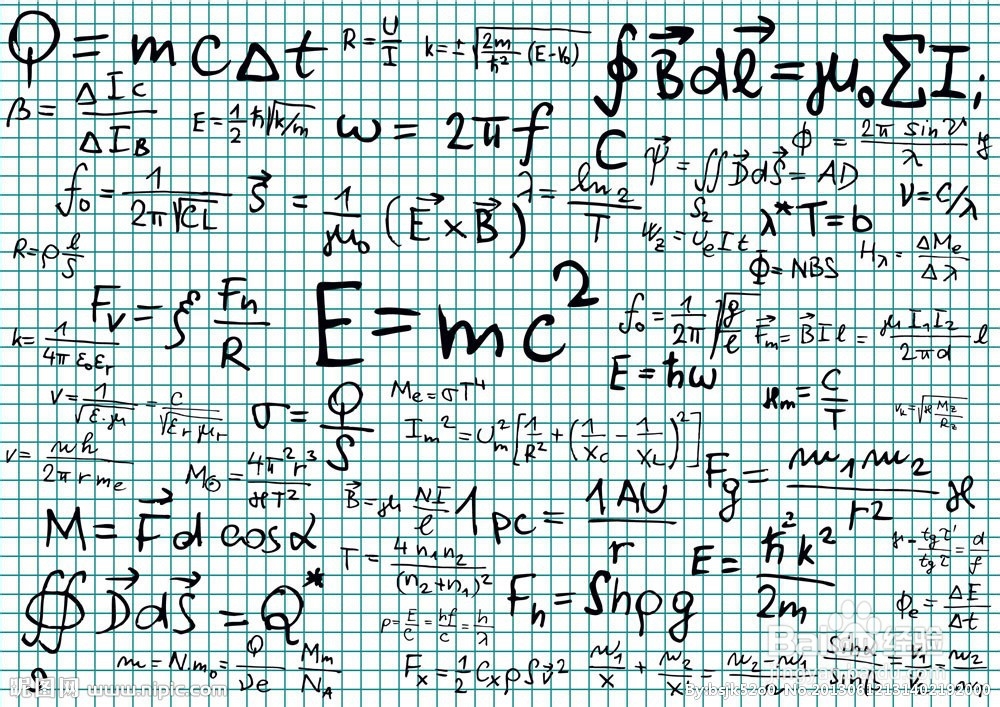 Q = mcΔt
R = U/I
k = ± √(2m/ħ² (E-V₀))
∮ B⃗ dℓ⃗ = μ₀ ΣI;
β = ΔIc/ΔI_B
E = 1/2 ħ√k/m
ω = 2πf
C
Ψ⃗ = ∬ D⃗dS⃗ = AD
S₂
ϕ = 2π sin ϑ/λ y
f₀ = 1/2π√CL
S⃗ = 1/μ₀ (E⃗ × B⃗)
λ = ln 2/T
v = c/λ
R = ρ ℓ/S
W_z = U_e I t
λ* T = b
Φ = NBS
H_λ = ΔM_e/Δλ
F_v = ξ F_n/R
E = mc²
k = 1/4π ε₀ε_r
f₀ = 1/2π √g/ℓ
F⃗_m = B⃗ I ℓ = μ I₁I₂/2πd ℓ
E = ħω
v = 1/√ε·μ = c/√ε_r μ_r
M_e = σT⁴
σ = Q/S
ϰ_m = C/T
v_k = √ϰ M_z/R_z
I_m² = U_m² [1/R² + (1/X_C - 1/X_L)²]
v = nh/2π r m_e
M_⊙ = 4π² r³/ϰT²
F_g = m₁m₂/r² ϰ
B⃗ = μ NI/ℓ
1 pc = 1 AU/r
M = F⃗ d cos α
T = 4 n₁n₂/(n₂+n₁)²
E = ħ²k²/2m
tgτ'/tgτ = d/f
∯ D⃗dS⃗ = Q*
S
F_h = Shρg
p = E/c = hf/c = h/λ
ϕ_e = ΔE/Δt
m = N·m₀ = Q/νe M_m/N_A
F_x = 1/2 C_x ρ S v⃗²
n₁/x + n₂/x' = n₂-n₁
Baidu经验
jingyan.baidu.com
昵图网 www.nipic.com
By:bsjk5260 No.20130812131402192000